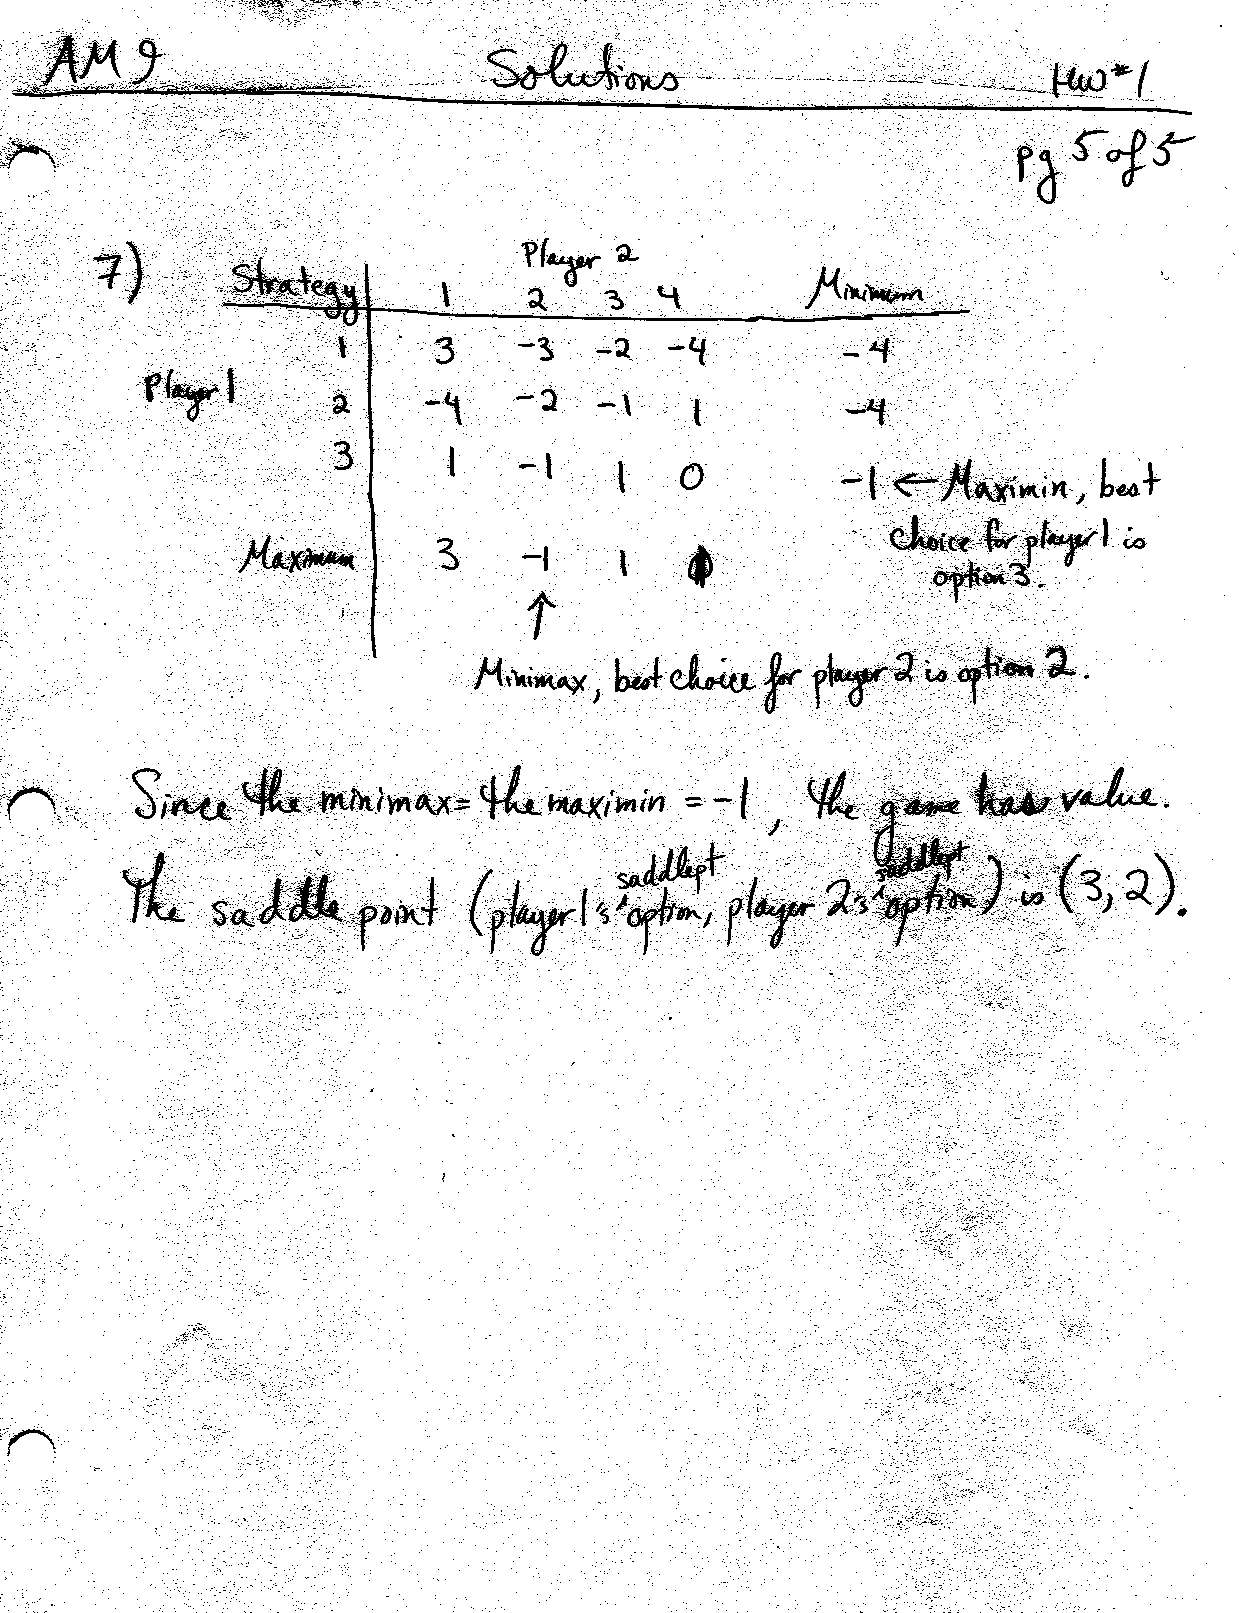 AM 9 Solutions HW#1
pg 5 of 5
7) Player 2
Strategy 1 2 3 4 Minimum
1 3 -3 -2 -4 -4
Player 1
2 -4 -2 -1 1 -4
3 1 -1 1 0 -1 ← Maximin, best
choice for player 1 is
option 3.
Maximum 3 -1 1
↑
Minimax, best choice for player 2 is option 2.
Since the minimax = the maximin = -1, the game has value.
saddlept saddlept
The saddle point (player 1's option, player 2's option) is (3, 2).